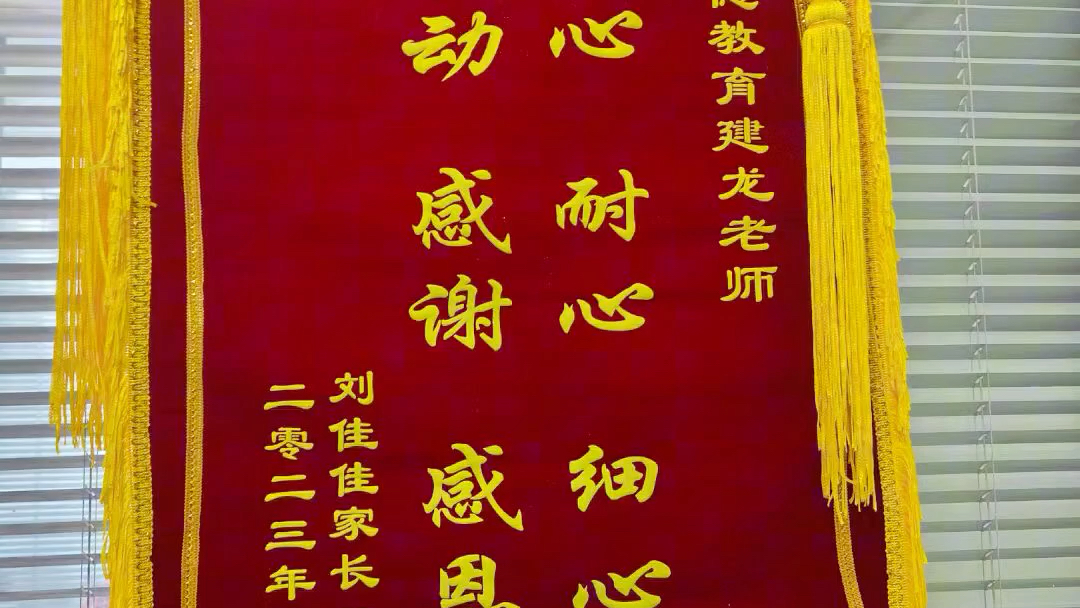 教育建龙老师
心耐心细心
动感谢感恩
刘佳佳家长
二零二三年